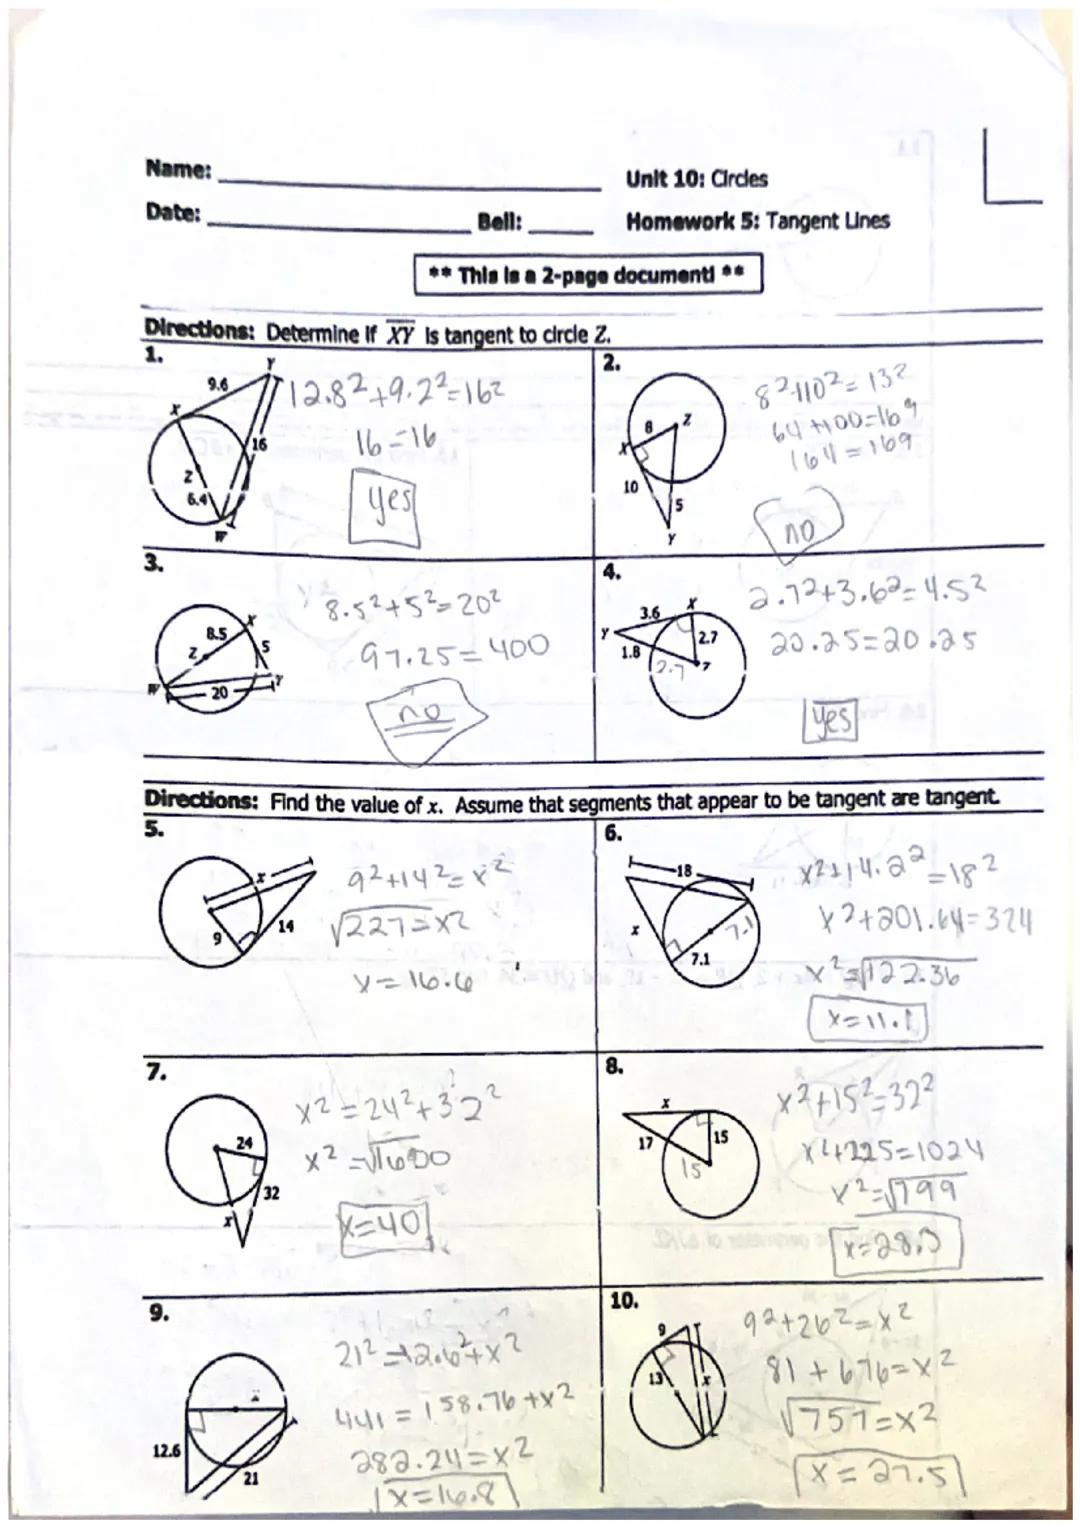 Name:
Unit 10: Circles
Date:
Bell:
Homework 5: Tangent Lines
** This is a 2-page document! **
Directions: Determine if XY is tangent to circle Z.
1.
Y
9.6
X
16
Z
6.4
W
12.8²+9.2²=16²
16=16
yes
2.
8
Z
X
10
5
Y
8²+10²=13²
64+100=169
164=169
no
3.
8.5
X
Z
5
W
20
Y
8.5²+5²=20²
97.25=400
no
4.
3.6
X
Y
2.7
1.8
2.7
Z
2.7²+3.6²=4.5²
20.25=20.25
yes
Directions: Find the value of x. Assume that segments that appear to be tangent are tangent.
5.
x
14
9
9²+14²=x²
√227=x²
x=16.6
6.
18
x
7.1
7.1
x²+14.2²=18²
x²+201.64=324
x²=√122.36
x=11.1
7.
24
32
x
x²=24²+32²
x²=√1600
x=40
8.
x
17
15
15
x²+15²=32²
x²+225=1024
x²=√799
x=28.3
9.
x
12.6
21
21²=12.6²+x²
441=158.76+x²
282.24=x²
x=16.8
10.
9
13
x
9²+26²=x²
81+676=x²
√757=x²
x=27.5